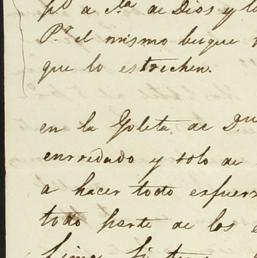 pl a Sta de Dios y lo
Pr el mismo buque
que lo estrechen.
en la Goleta de Dn
enredado y solo de
a hacer todo esfuer
todo parte de los
Lima